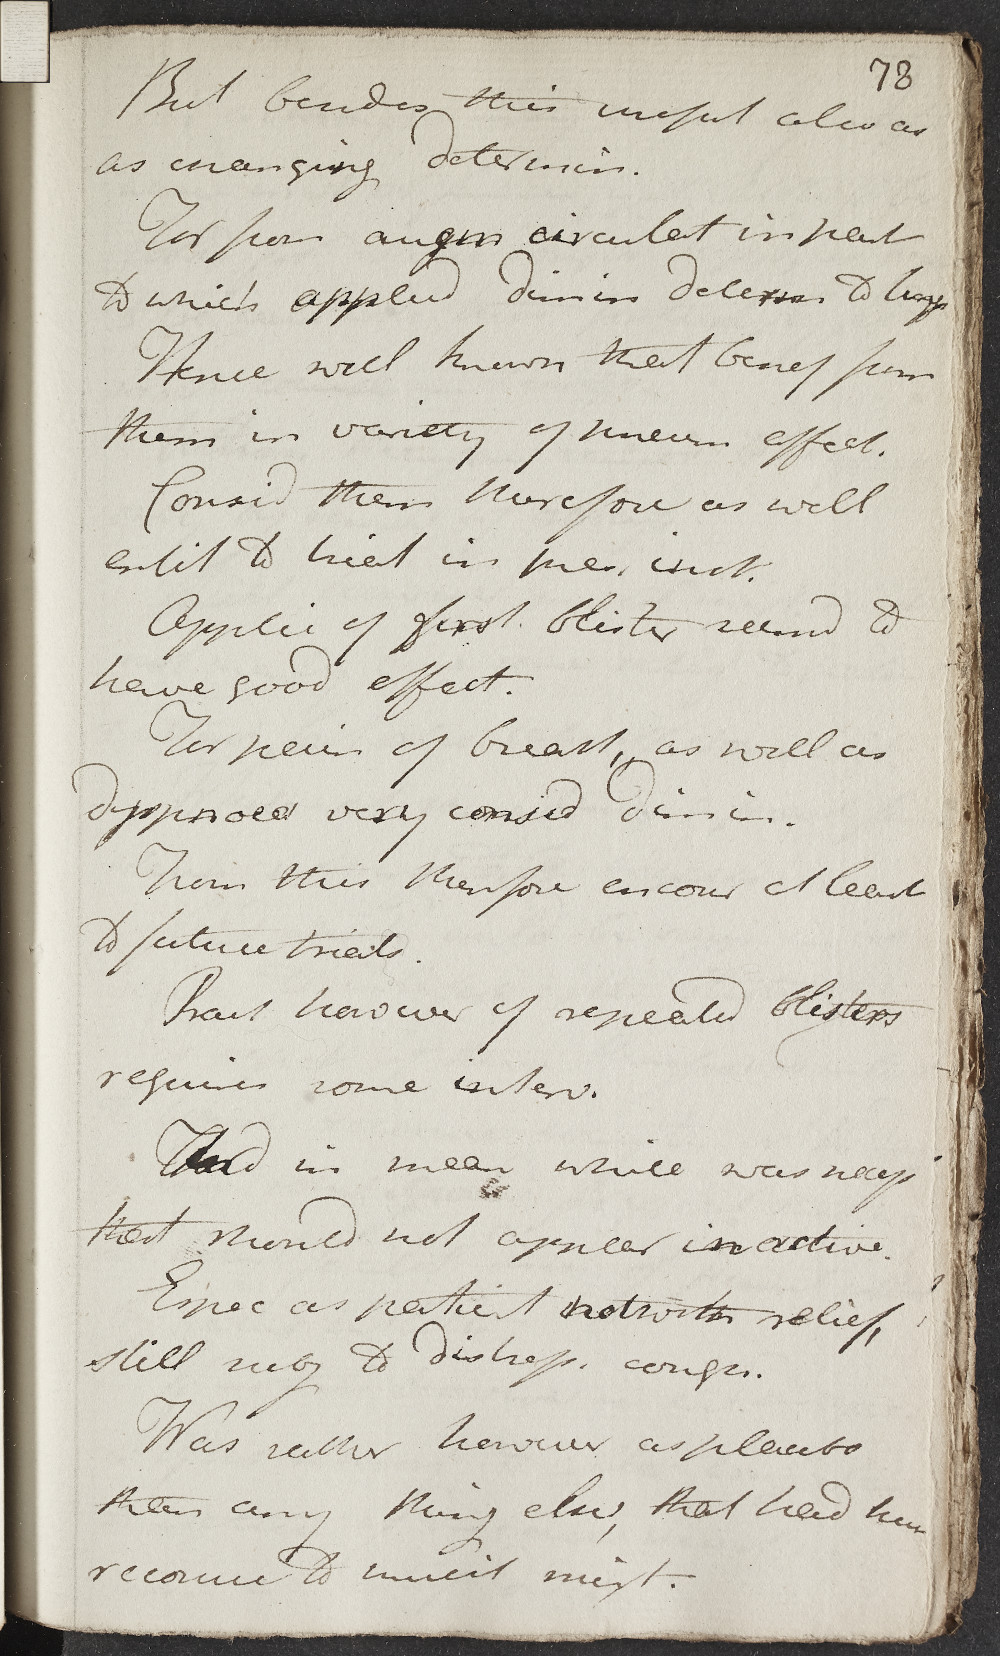 78
But besides this useful also as
as changing determin.
For from augm circulat in part
to which applied dimin determ to lungs
Hence well known that benef from
them in variety of pneum affect.
Consid them therefore as well
entit to trial in pres. inst.
Applic of first blister seemd to
have good effect.
For pain of breast, as well as
dyspnoea very consid dimin.
From this therefore encour at least
to future trials.
Pract however of repeated blisters
requires some interv.
And in mean while was necess
that should not appear inactive.
Espec as patient notwith relief,
still subj to distress. cough.
Was rather however as placebo
than any thing else, that had him
recourse to mucil mixt.